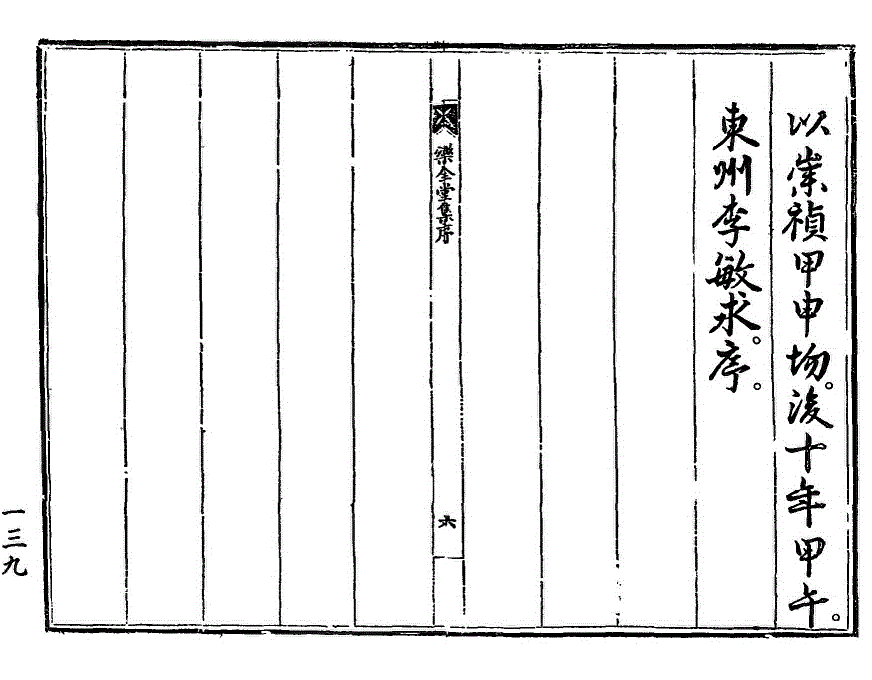 以崇禎甲申歾。後十年甲午。
東州李敏求。序。
樂全堂集序
六
一三九